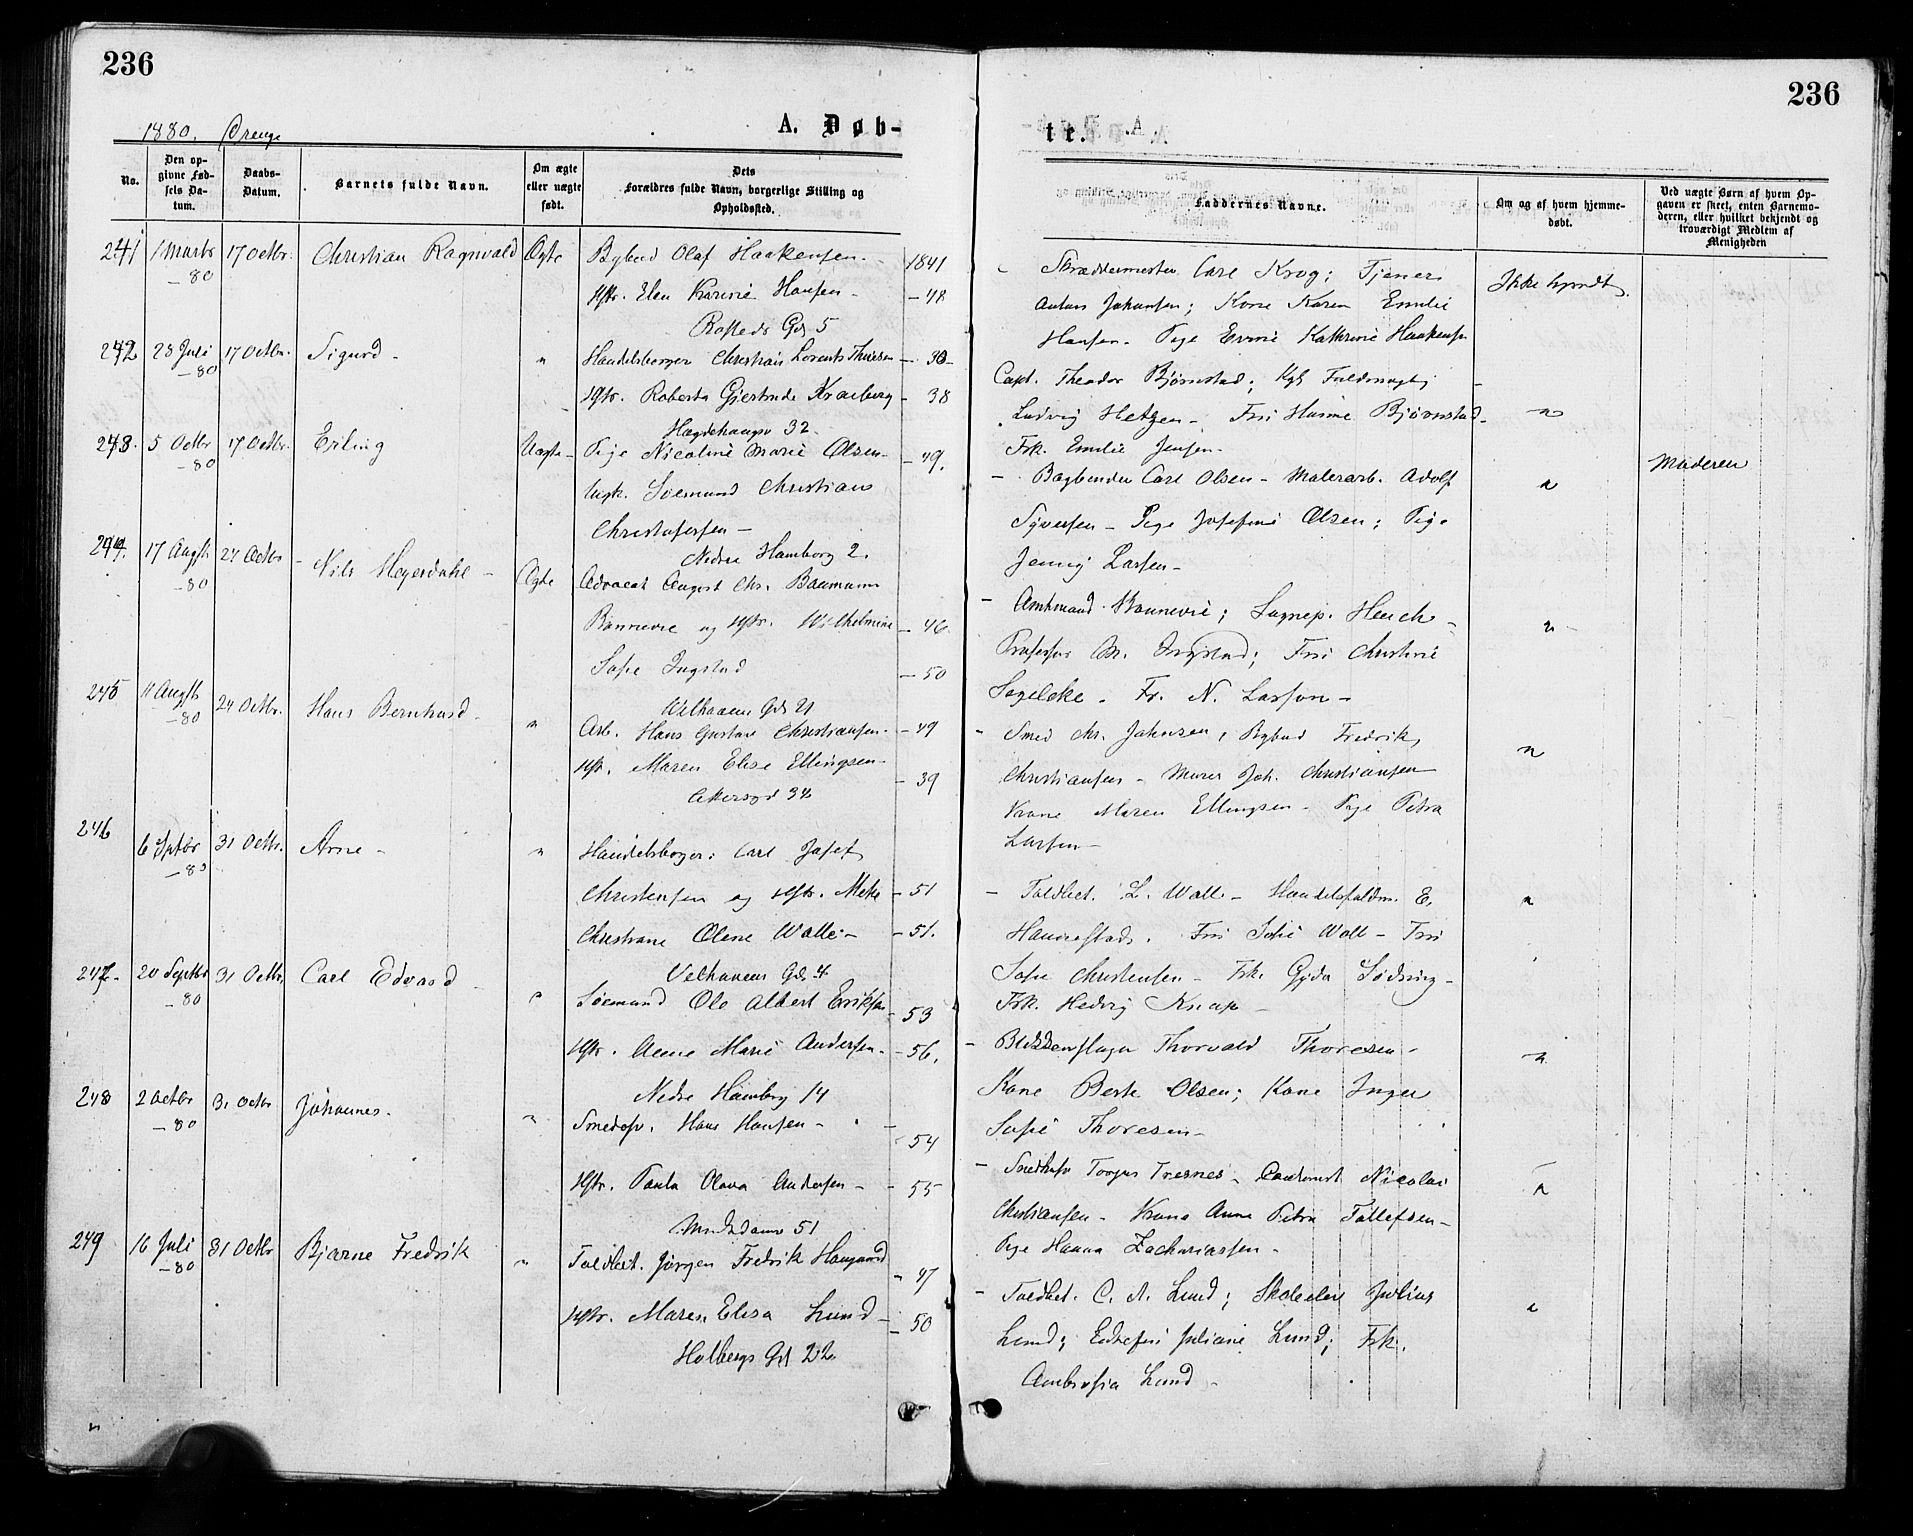 236
236
1880. Drenge
A. Døb-
te.
No.
Den op-
givne Fød-
sels Da-
tum.
Daabs-
Datum.
Barnets fulde Navn.
Om ægte
eller uægte
født.
Dets
Forældres fulde Navn, borgerlige Stilling og
Opholdssted.
Faddernes Navne.
Om og af hvem hjemme-
døbt.
Ved uægte Børn af hvem Op-
gaven er skeet, enten Barnemo-
deren, eller hvilket bekjendt og
troværdigt Medlem af
Menigheden
241 1 Marts -80 17 Octbr. Christian Ragnvald Ægte Bybud Olaf Haakensen - 1841
Hstr. Elen Karine Hansen - - 48
Rosteds Gd 5
Skræddermester Carl Krog; Tjener
Anton Johansen; Kone Karen Emilie
Hansen - Pige Evine Kathrine Haakensen
Ikke hjemdt.
242 28 Juli -80 17 Octbr. Sigurd - " Handelsborger Christian Lorents Thuesen - 30
Hstr. Roberta Gjertrude Kraeberg - 38
Hægdehaugsv 32
Capt. Theodor Bjørnstad; Kgl Fuldmægtig
Ludvig Hetgen - Fru Hanne Bjørnstad -
Frk. Emilie Jensen - "
243. 5 Octbr -80 17 Octbr. Erling Uægte - Pige Nicoline Marie Olsen - - 49.
Ungk. Sømand Christian
Christofersen -
Nedre Hamborg 2.
- Bogbinder Carl Olsen - Malerarb. Adolf
Syversen - Pige Josefine Olsen; Pige
Jenny Larsen - "
Moderen
244. 17 Augst -80 24 Octbr - Nils Heyerdahl - Ægte Advocat August Chr. Baumann
Bonnevie og Hstr. Wilhelmine - 46
Sofie Ingstad - 50
Welhavens Gd 21
- Amtmand Bonnevie; Sognep. Heuch -
Professor M. Ingstad; Fru Christine
Segelcke - Fr. N. Larson - "
245 11 Augst -80 24 Octbr. Hans Bernhard - " Arb. Hans Gustav Christiansen - - 49
Hstr. Maren Elise Ellingsen - - 39
Akersgd 32
- Smed Chr. Johnsen, Bybud Fredrik
Christiansen - Murer Joh. Christiansen
Kone Maren Ellingsen - Pige Petra
Larsen - "
246 6 Sptbr -80 31 Octbr. Arne - " Handelsborger: Carl Josef
Christensen og Hstr. Mette - 51
Christiane Olene Walle - - 51.
Velhavens Gd 4
- Toldbet. L. Wall - Handelsfuldm. E.
Hannestad. Fru Sofie Wall - Fru
Sofie Christensen - Frk. Gyda Sødring -
Frk. Hedvig Knap - "
247 - 20 Septbr -80 31 Octbr. Carl Edvard - " Sømand Ole Albert Eriksen - 53
Hstr. Anne Marie Andersen - - 56.
Nedre Hamborg 14
- Blikkenslager Thorvald Thoresen -
Kone Berte Olsen; Kone Inger
Sofie Thoresen - "
248 2 Octbr -80 31 Octbr Johannes - " Smedsv. Hans Hansen - - 54
Hstr. Paula Olava Andersen - - 55
51
- Smedsv Torger Tresnes - Nicolai
Christiansen - Kone Anne Petra Tollefsen -
Pige Hanna Zachariassen - "
249 16 Juli -80 31 Octbr Bjarne Fredrik " Toldbet. Jørgen Fredrik Haugaard - 47
Hstr. Maren Elisa Lund - - 50
Holbergs Gd 22
- Toldbet. C. A. Lund; Skoleelev Julius
Lund; Enkefru Juliane Lund; Frk.
Ambrosia Lund - "